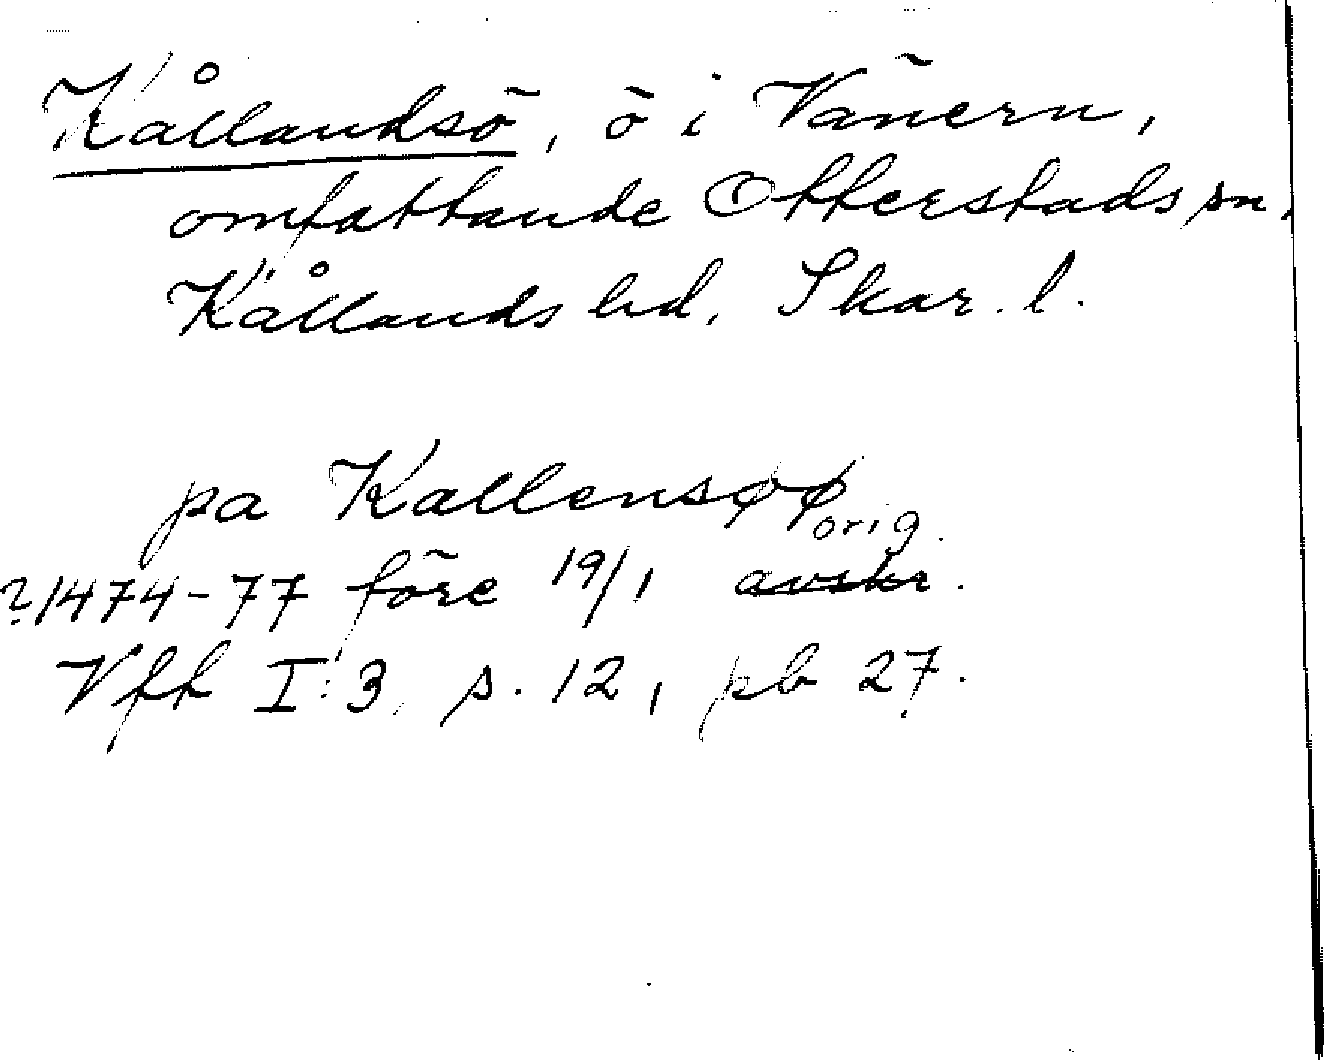 Kållandsö, ö i Vänern,
omfattande Otterstads sn,
Kållands hd, Skar. l.
pa Kallensøø
orig.
?1474-77 före 19/1 avskr.
Vff I:3, s. 12, pb 27.